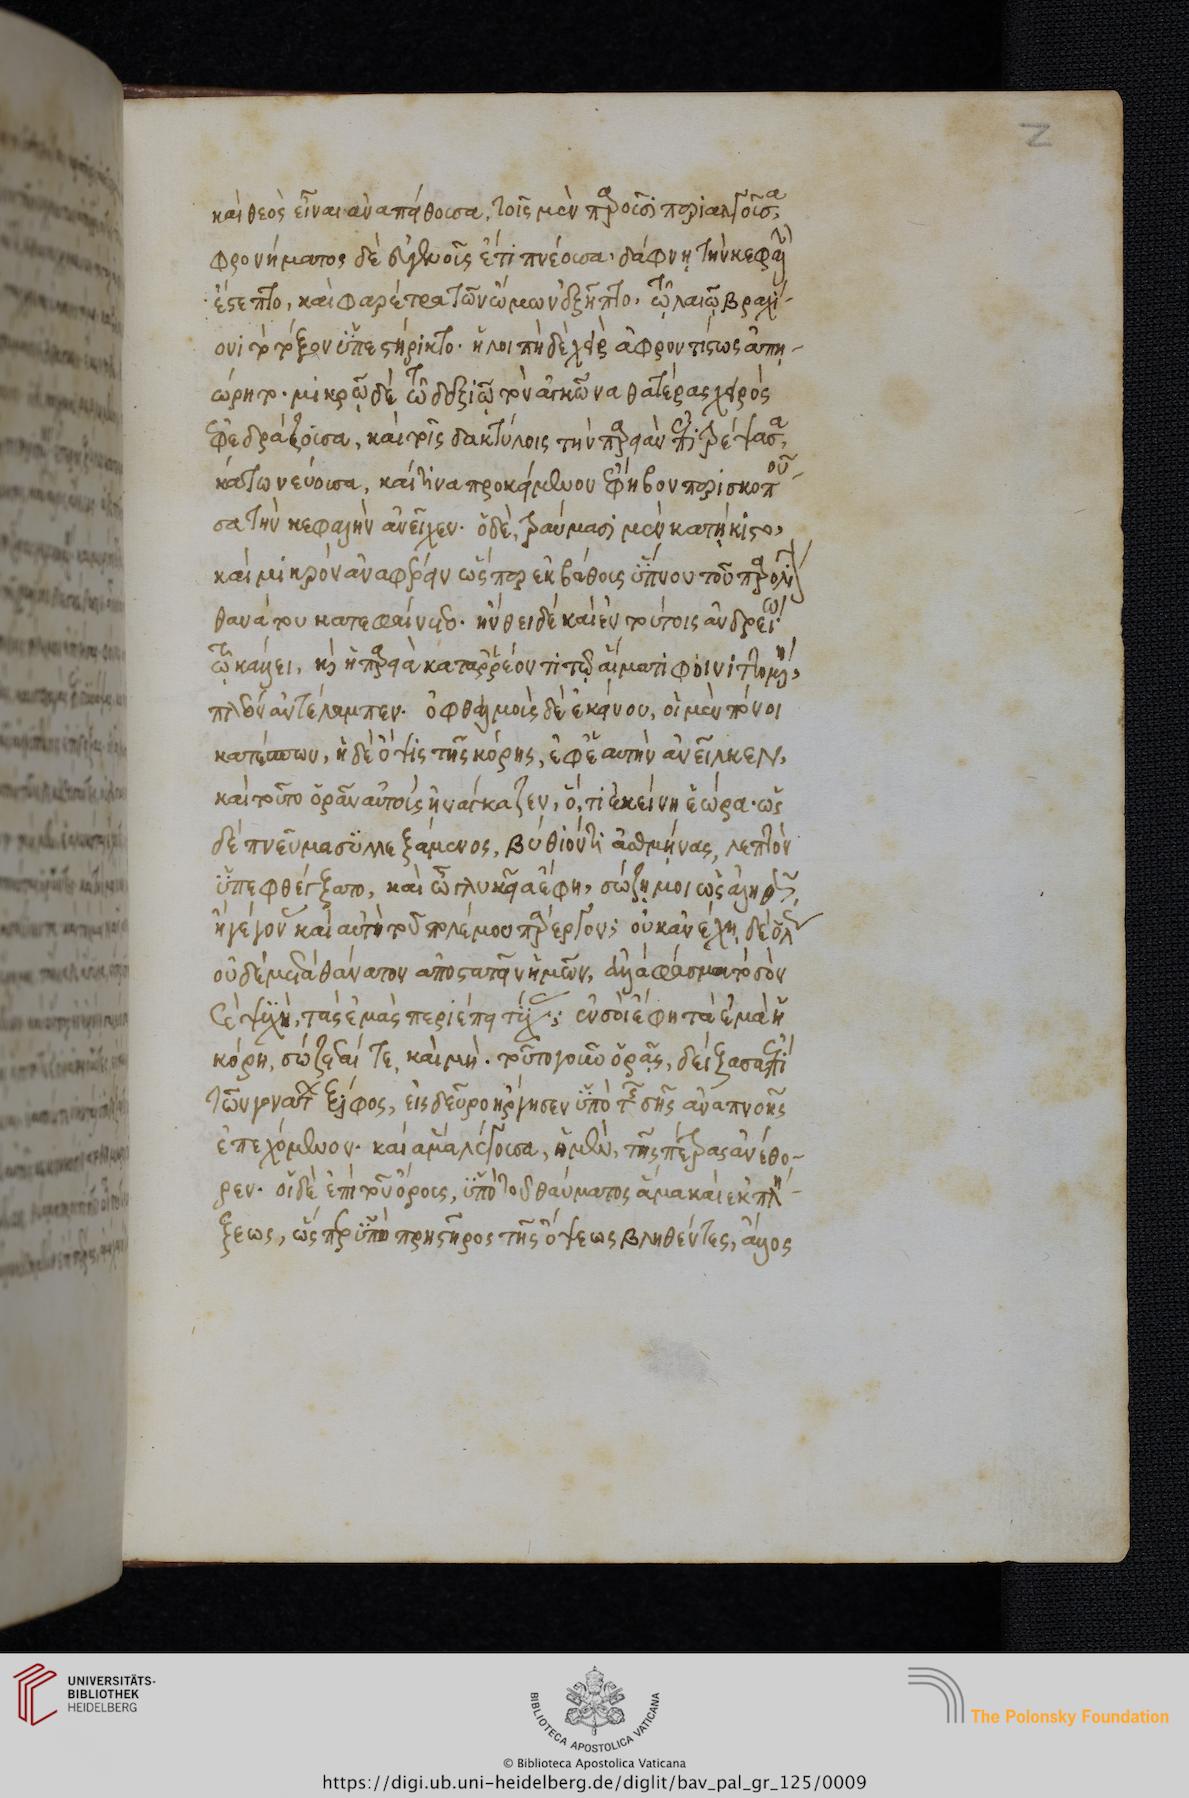 καὶ θεὸς εἶναι ἀναπείθουσα, τοῖς μὲν παροῦσι περιαλγοῦσα,
φρονήματος δὲ εὐγενοῦς ἔτι πνέουσα· δάφνῃ τὴν κεφαλὴν
ἔστεπτο, καὶ φαρέτραν τῶν ὤμων ἐξῆπτο· τῷ λαιῷ βραχί-
ονι τὸ τόξον ὑπεστήρικτο· ἡ λοιπὴ δὲ χεὶρ ἀφροντίστως ἀπῃ-
ώρητο· μηρῷ δὲ τῷ δεξιῷ τὸν ἀγκῶνα θατέρας χειρὸς
ἐφεδράζουσα, καὶ τοῖς δακτύλοις τὴν παρειὰν ἐπιτρέψασα,
κάτω νεύουσα, καί τινα προκείμενον ἔφηβον περισκοποῦ-
σα τὴν κεφαλὴν ἀνεῖχεν· ὁ δὲ, τραύμασι μὲν κατῄκιστο,
καὶ μικρὸν ἀναφέρειν ὥσπερ ἐκ βάθους ὕπνου τοῦ παρ' ὀλίγον
θανάτου κατεφαίνετο· ἤνθει δὲ καὶ ἐν τούτοις ἀνδρείῳ
τῷ κάλλει, καὶ ἡ παρειὰ καταρρέοντι τῷ αἵματι φοινιττομένη,
πλέον ἀντέλαμπεν· ὀφθαλμοὺς δὲ ἐκείνου, οἱ μὲν πόνοι
κατέσπων, ἡ δὲ ὄψις τῆς κόρης, ἐφ' ἑαυτὴν ἀνεῖλκεν,
καὶ τοῦτο ὁρᾶν αὐτοὺς ἠνάγκαζεν, ὅ,τι ἐκείνη ἑώρα· ὡς
δὲ πνεῦμα συλλεξάμενος, βύθιόν τι ἀσθμήνας, λεπτὸν
ὑπεφθέγξατο, καὶ ὦ γλυκεῖα ἔφη, σώζῃ μοι ὡς ἀληθῶς,
ἢ γέγονας καὶ αὐτὴ τοῦ πολέμου πάρεργον; οὐκ ἀνέχῃ δὲ ὅλως
οὐδὲ μετὰ θάνατον ἀποστατεῖν ἡμῶν, ἀλλὰ φάσμα τὸ σὸν
καὶ ψυχὴ, τὰς ἐμὰς περιέπει τύχας; ἐν σοὶ ἔφη τὰ ἐμὰ ἡ
κόρη, σώζεσθαί τε, καὶ μή· τοῦτο γοῦν ὁρᾷς, δείξασα ἐπὶ
τῶν γονάτων ξίφος, εἰς δεῦρο ἤργησεν ὑπὸ τῆς σῆς ἀναπνοῆς
ἐπεχόμενον· καὶ ἅμα λέγουσα, ἡ μὲν, τῆς πέτρας ἀνέθο-
ρεν· οἱ δὲ ἐπὶ τοῦ ὄρους, ὑπὸ τοῦ θαύματος ἅμα καὶ ἐκπλή-
ξεως, ὥσπερ ὑπὸ πρηστῆρος τῆς ὄψεως βληθέντες, ἄλλος
UNIVERSITÄTS-
BIBLIOTHEK
HEIDELBERG
BIBLIOTECA APOSTOLICA VATICANA
The Polonsky Foundation
© Biblioteca Apostolica Vaticana
https://digi.ub.uni-heidelberg.de/diglit/bav_pal_gr_125/0009